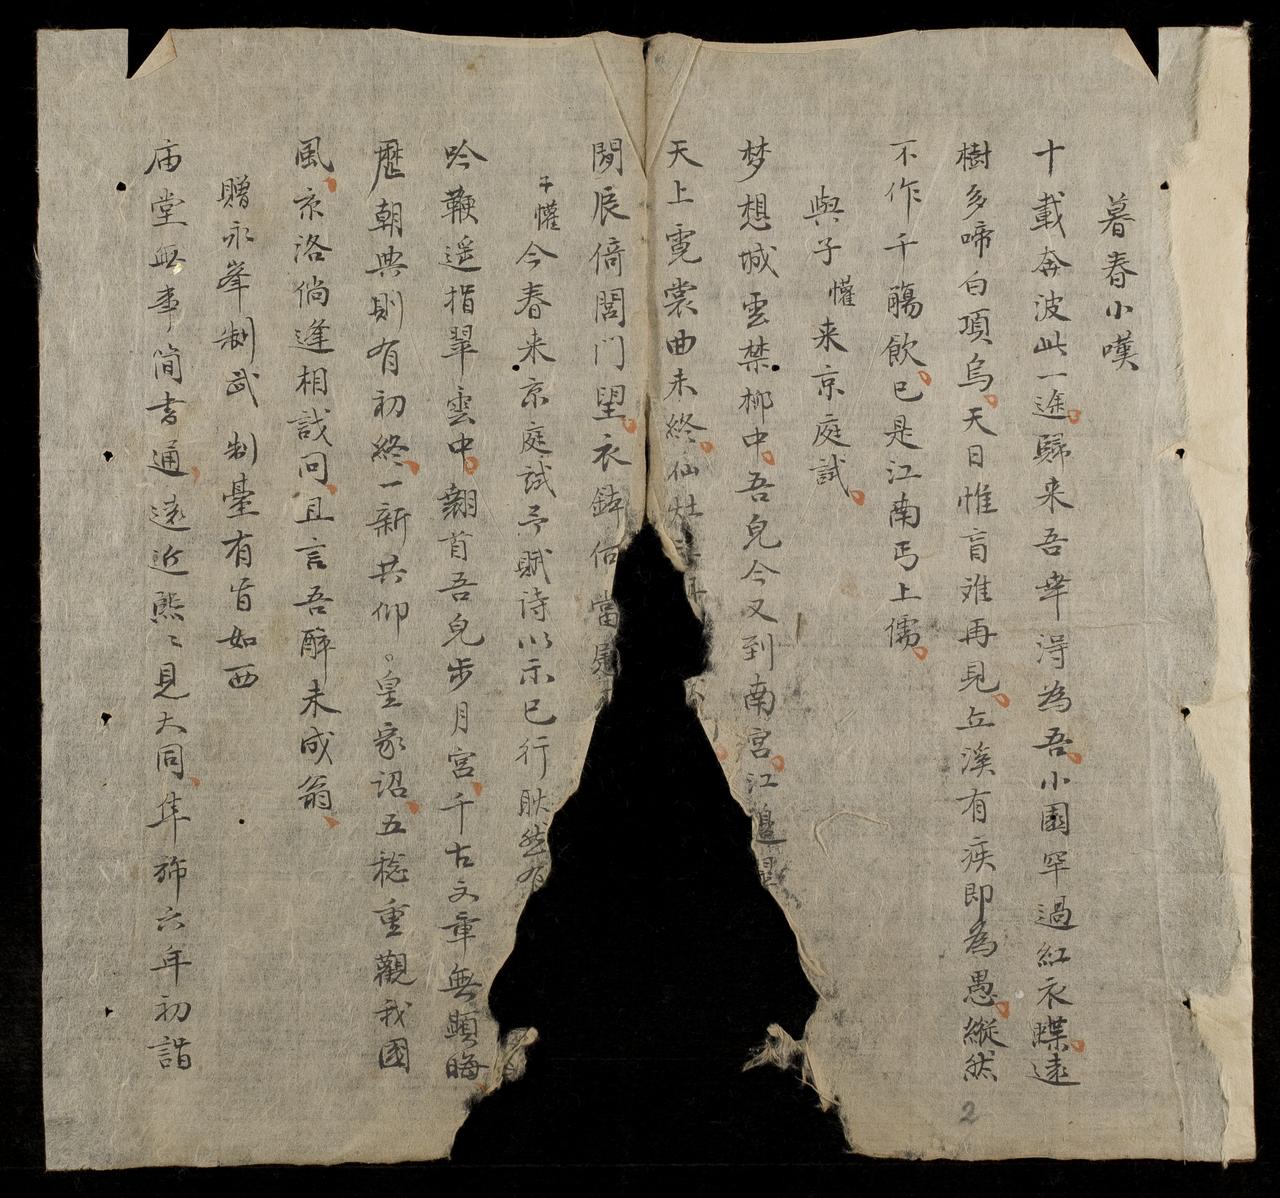 暮春小嘆
十載奔波此一途歸来吾幸淂為吾小園罕過紅衣蝶遠
樹多啼白項烏天日惟盲难再見丘溪有疾即為愚縱然
不作千觴飲已是江南丐上儒
與子懽来京庭試
梦想城雲禁柳中吾兒今又到南宮江邉
天上霓裳曲未終仙
閒辰倚閭门望衣鉢佰當
子懽今春来京庭試予賦诗以示已行
吟鞭遥指翠雲中翹首吾兒步月宮千古文章無顕晦
歷朝典則有初終一新共仰皇家詔五稔重觀我國
風京洛倘逢相戠问且言吾醉未成翁
贈永峯制武 制臺有旨如西
庙堂無事简书通遠近熈〻見大同隼斾六年初詣
2